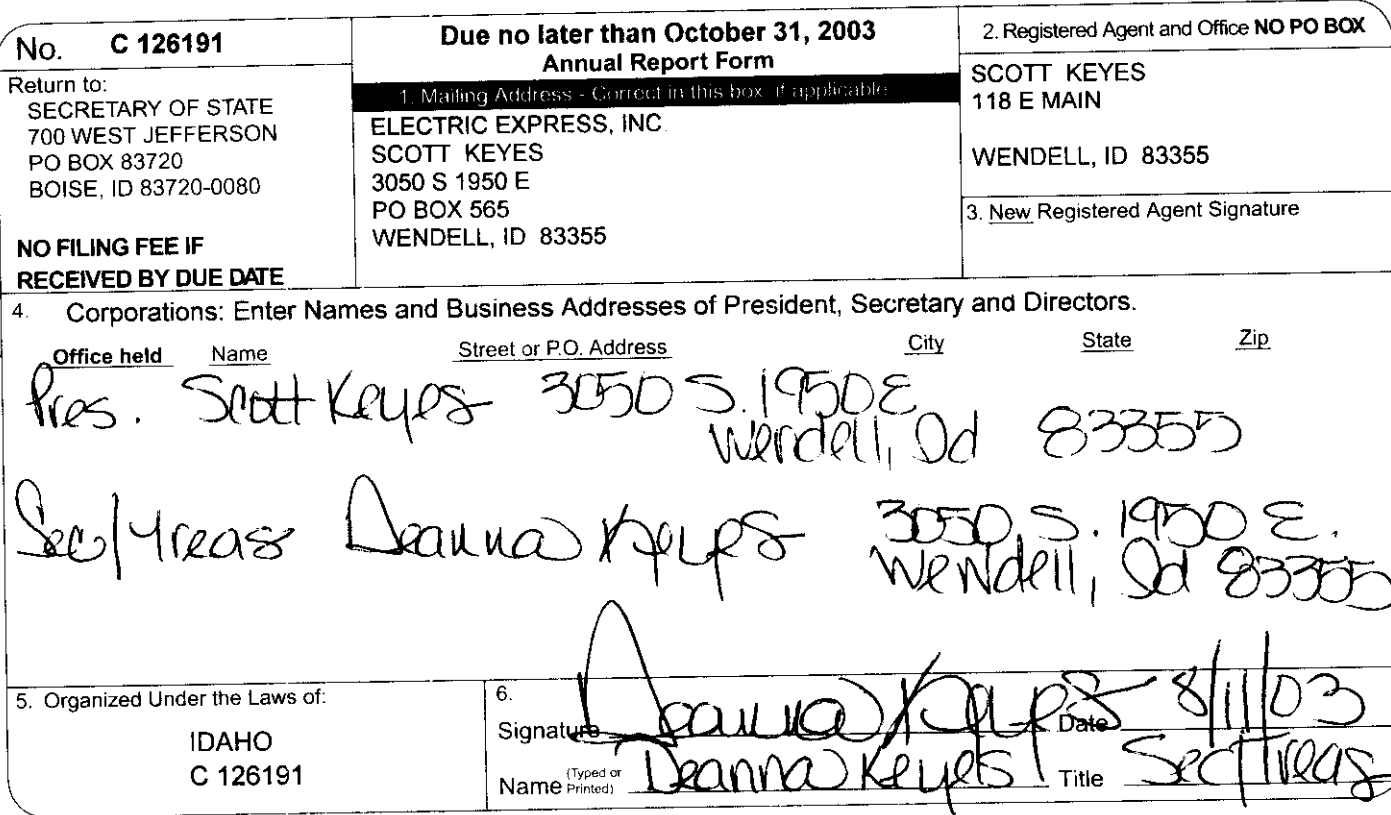 No. C 126191
Return to:
SECRETARY OF STATE
700 WEST JEFFERSON
PO BOX 83720
BOISE, ID 83720-0080
NO FILING FEE IF
RECEIVED BY DUE DATE
Due no later than October 31, 2003
Annual Report Form
1. Mailing Address - Correct in this box if applicable
ELECTRIC EXPRESS, INC.
SCOTT KEYES
3050 S 1950 E
PO BOX 565
WENDELL, ID 83355
2. Registered Agent and Office NO PO BOX
SCOTT KEYES
118 E MAIN
WENDELL, ID 83355
3. New Registered Agent Signature
4. Corporations: Enter Names and Business Addresses of President, Secretary and Directors.
Office held Name Street or P.O. Address City State Zip
Pres. Scott Keyes 3050 S. 1950 E
Wendell, Id 83355
Sec/Treas Deanna Keyes 3050 S. 1950 E.
Wendell, Id 83355
5. Organized Under the Laws of:
IDAHO
C 126191
6.
Signature Deanna Keyes Date 8/11/03
Name (Typed or Printed) Deanna Keyes Title Sec/Treas